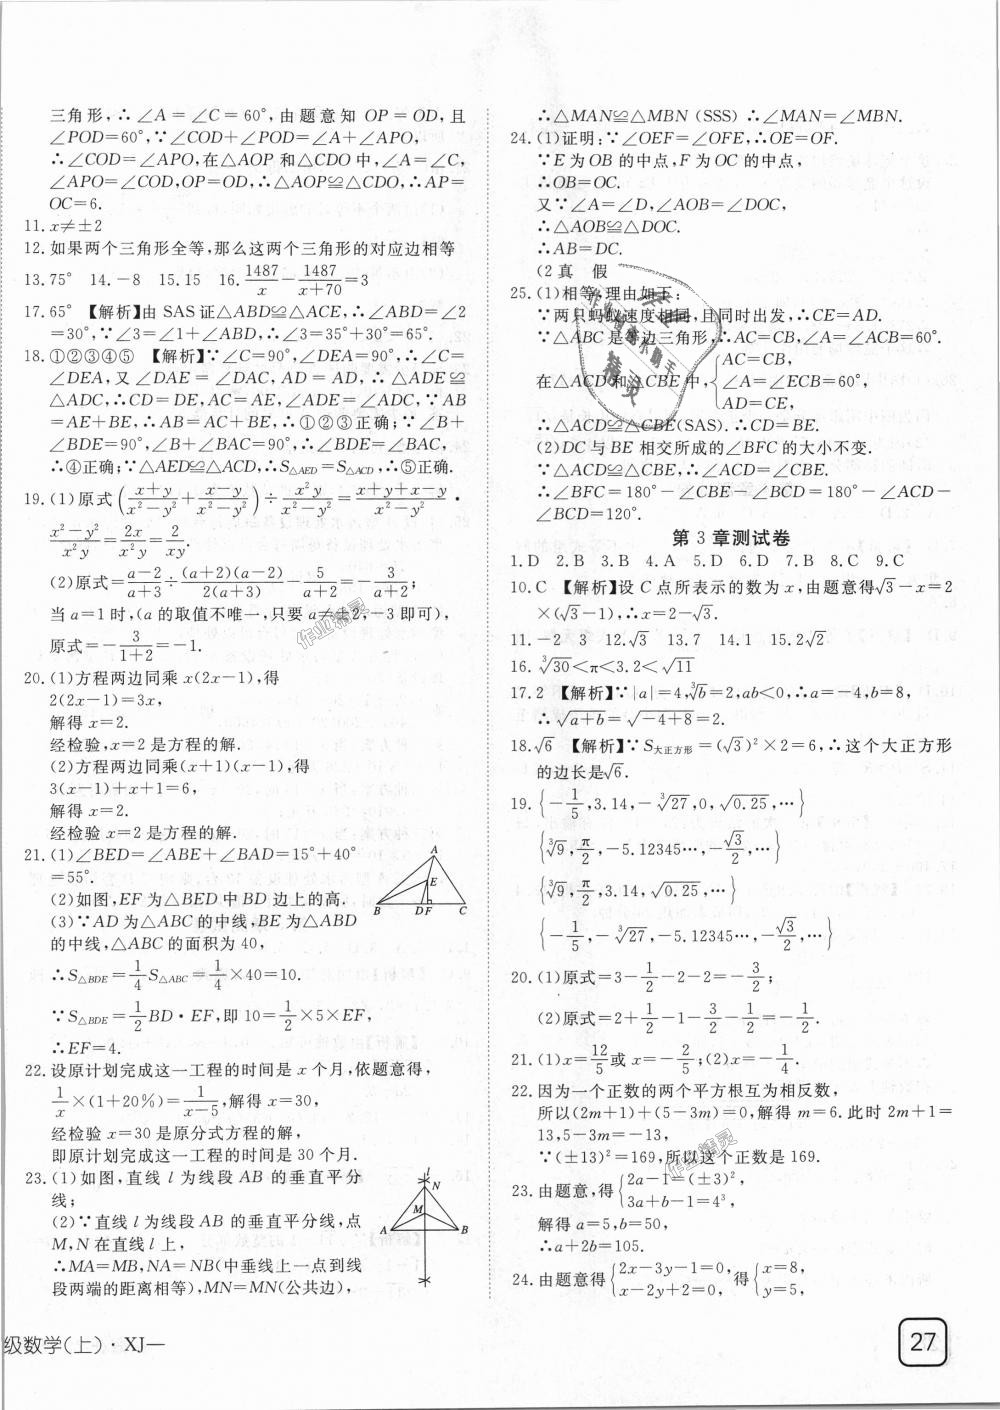 三角形,∴∠A=∠C=60°,由题意知 OP=OD,且
∠POD=60°,∵∠COD+∠POD=∠A+∠APO,
∴∠COD=∠APO,在△AOP 和△CDO 中,∠A=∠C,
∠APO=∠COD,OP=OD,∴△AOP≌△CDO,∴AP=
OC=6.
11.x≠±2
12.如果两个三角形全等,那么这两个三角形的对应边相等
13.75° 14.-8 15.15 16.1487/x-1487/(x+70)=3
17.65° 【解析】由 SAS 证△ABD≌△ACE,∴∠ABD=∠2
=30°,∵∠3=∠1+∠ABD,∴∠3=35°+30°=65°.
18.①②③④⑤ 【解析】∵∠C=90°,∠DEA=90°,∴∠C=
∠DEA,又∠DAE=∠DAC,AD=AD,∴△ADE≌
△ADC,∴CD=DE,AC=AE,∠ADE=∠ADC,∵AB
=AE+BE,∴AB=AC+BE,∴①②③正确;∵∠B+
∠BDE=90°,∠B+∠BAC=90°,∴∠BDE=∠BAC,
∴④正确;∵△AED≌△ACD,∴S△AED=S△ACD,∴⑤正确.
19.(1)原式((x+y)/(x²-y²)+(x-y)/(x²-y²))÷x²y/(x²-y²)=(x+y+x-y)/(x²-y²)·
(x²-y²)/x²y=2x/x²y=2/xy.
(2)原式=(a-2)/(a+3)÷(a+2)(a-2)/2(a+3)-5/(a+2)=-3/(a+2);
当 a=1 时,(a 的取值不唯一,只要 a≠±2,-3 即可),
原式=-3/(1+2)=-1.
20.(1)方程两边同乘 x(2x-1),得
2(2x-1)=3x,
解得 x=2.
经检验,x=2 是方程的解.
(2)方程两边同乘(x+1)(x-1),得
3(x-1)+x+1=6,
解得 x=2.
经检验 x=2 是方程的解.
21.(1)∠BED=∠ABE+∠BAD=15°+40°
=55°.
(2)如图,EF 为△BED 中 BD 边上的高.
(3)∵AD 为△ABC 的中线,BE 为△ABD
的中线,△ABC 的面积为 40,
A
E
B D F C
∴S△BDE=1/4S△ABC=1/4×40=10.
∵S△BDE=1/2BD·EF,即 10=1/2×5×EF,
∴EF=4.
22.设原计划完成这一工程的时间是 x 个月,依题意得,
1/x×(1+20%)=1/(x-5),解得 x=30,
经检验 x=30 是原分式方程的解,
即原计划完成这一工程的时间是 30 个月.
23.(1)如图,直线 l 为线段 AB 的垂直平分
线;
(2)∵直线 l 为线段 AB 的垂直平分线,点
M,N 在直线 l 上,
∴MA=MB,NA=NB(中垂线上一点到线
段两端的距离相等),MN=MN(公共边),
l
N
M
A B
∴△MAN≌△MBN (SSS) ∴∠MAN=∠MBN.
24.(1)证明:∵∠OEF=∠OFE,∴OE=OF.
∵E 为 OB 的中点,F 为 OC 的中点,
∴OB=OC.
又∵∠A=∠D,∠AOB=∠DOC,
∴△AOB≌△DOC.
∴AB=DC.
(2 真 假
25.(1)相等,理由如下:
∵两只蚂蚁速度相同,且同时出发,∴CE=AD.
∵△ABC 是等边三角形,∴AC=CB,∠A=∠ACB=60°.
在△ACD 和△CBE 中,{AC=CB,
∠A=∠ECB=60°,
AD=CE,
∴△ACD≌△CBE(SAS).∴CD=BE.
(2)DC 与 BE 相交所成的∠BFC 的大小不变.
∵△ACD≌△CBE,∴∠ACD=∠CBE.
∴∠BFC=180°-∠CBE-∠BCD=180°-∠ACD-
∠BCD=120°.
第 3 章测试卷
1.D 2.B 3.B 4.A 5.D 6.D 7.B 8.C 9.C
10.C 【解析】设 C 点所表示的数为 x,由题意得√3-x=2
×(√3-1),∴x=2-√3.
11.-2 3 12.√3 13.7 14.1 15.2√2
16.∛30<π<3.2<√11
17.2 【解析】∵|a|=4,∛b=2,ab<0,∴a=-4,b=8,
∴√(a+b)=√(-4+8)=2.
18.√6 【解析】∵S大正方形=(√3)²×2=6,∴这个大正方形
的边长是√6.
19.{-1/5,3.14,-∛27,0,√0.25,…}
{∛9,π/2,-5.12345…,-√3/2,…}
{∛9,π/2,3.14,√0.25,…}
{-1/5,-∛27,-5.12345…,-√3/2,…}
20.(1)原式=3-1/2-2-2=-3/2;
(2)原式=2+1/2-1-3/2-1/2=-1/2.
21.(1)x=12/5或 x=-2/5;(2)x=-1/4.
22.因为一个正数的两个平方根互为相反数,
所以(2m+1)+(5-3m)=0,解得 m=6.此时 2m+1=
13,5-3m=-13,
∵(±13)²=169,所以这个正数是 169.
23.由题意,得{2a-1=(±3)²,
3a+b-1=4³,
解得 a=5,b=50,
∴a+2b=105.
24.由题意得{2x-3y-1=0, 得{x=8,
x-2y+2=0, y=5,
级数学(上)·XJ—
27
作业精灵
作业精灵